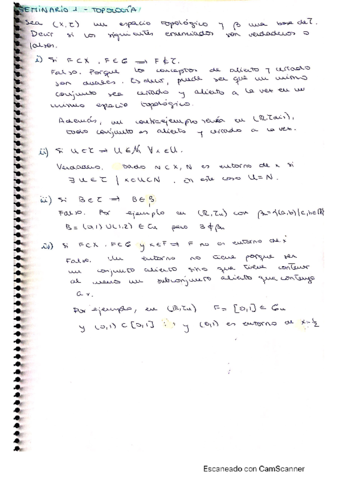 SEMINARIO 1 - TOPOLOGÍA:
Sea (X,τ) un espacio topológico y β una base de τ.
Decir si los siguientes enunciados son verdaderos o
falsos.
i) Si F⊂X, F∈G ⇒ F∉τ.
Falso. Porque los conceptos de abierto y cerrado
son duales. Es decir, puede ser que un mismo
conjunto sea cerrado y abierto a la vez en un
mismo espacio topológico.
Además, un contraejemplo sería en (ℝ,
todo conjunto es abierto y cerrado a la vez.
ii) Si U∈τ ⇒ U∈ ∀x∈U.
Verdadero, dado N⊂X, N es entorno de x si
∃ U∈τ | x∈U⊂N. En este caso U=N.
iii) Si B∈τ ⇒ B∈β
Falso. Por ejemplo en (ℝ,τu) con β=
B=(0,1)∪(1,2) ∈ τu pero B∉β
iv) Si F⊂X, F∈G y x∈F ⇒ F no es entorno de x
Falso. Un entorno no tiene porque ser
un conjunto abierto sino que tiene contener
al menos un subconjunto abierto que contenga
a x.
Por ejemplo, en (ℝ,τu) F=[0,1]∈Gu
y (0,1)⊂[0,1] y (0,1) es entorno de x=½
Escaneado con CamScanner